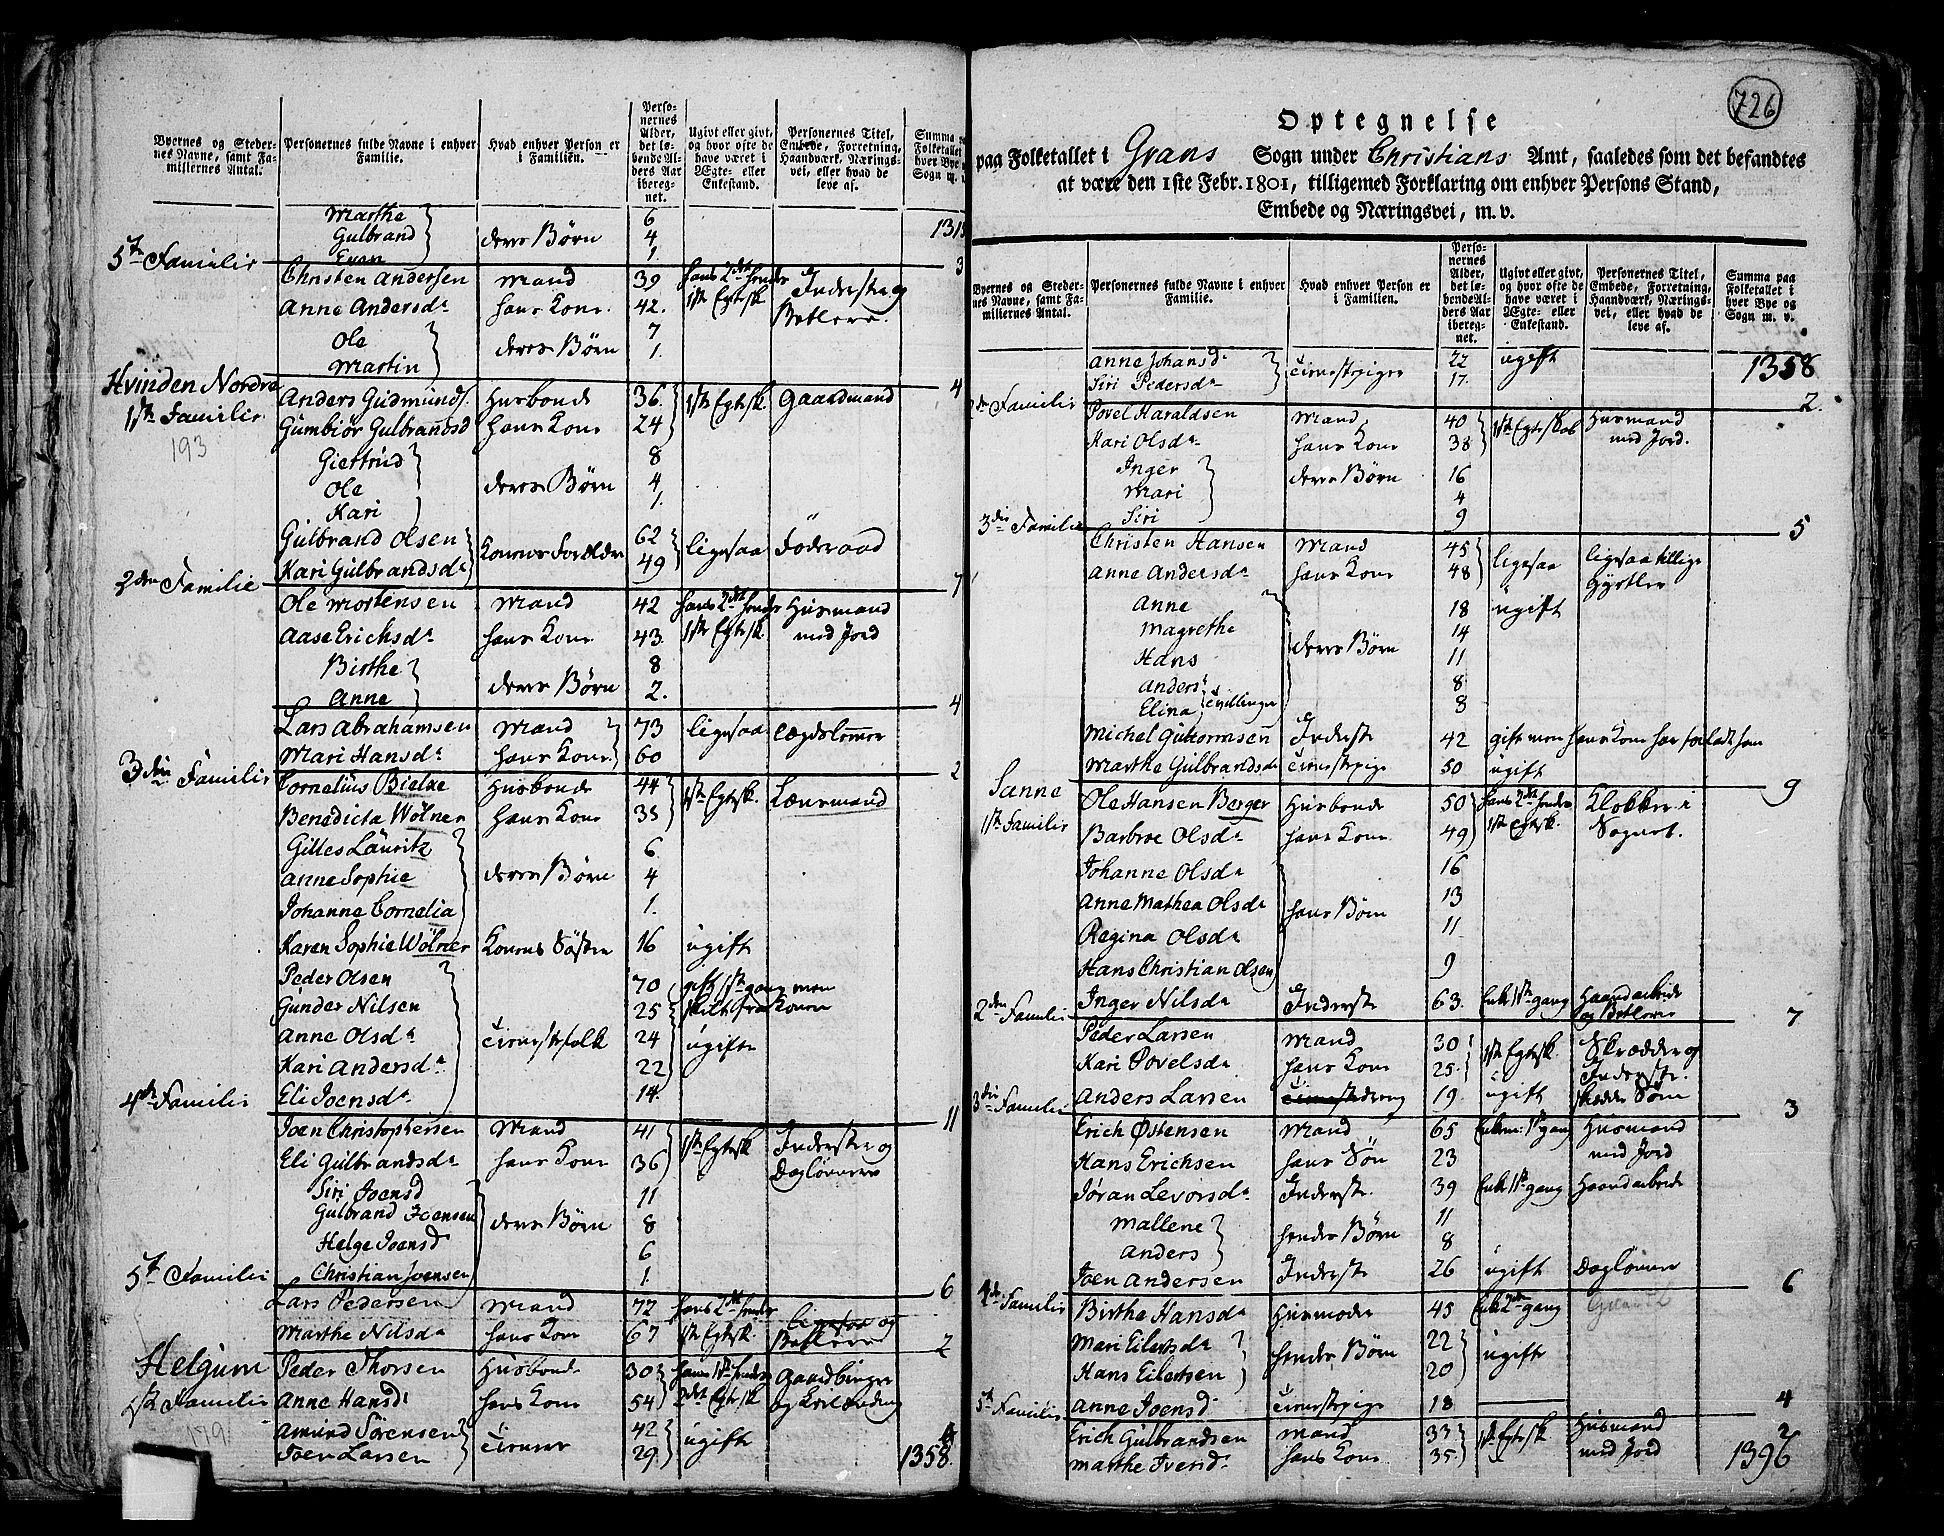 Byernes og Steder-
nes Navne, samt Fa-
miliernes Antal.
Personernes fulde Navne i enhver
Familie.
Hvad enhver Person er
i Familien.
Perso-
nernes
Alder,
det lø-
bende Al-
ders Aar
ibereg-
net.
Ugivt eller givt,
og hvor ofte de
have været i
Ægte- eller
Enkestand.
Personernes Titel,
Embede, Forretning,
Haandværk, Nærings-
vei, eller hvad de
leve af.
Summa
Folketallet
hver Bye
Sogn m.
Marthe 6
Gulbrand deres Børn 4
Even 1.
5te Familie 3
Christen Andersen Mand 39 hans 2det hendes Inderste og
Anne Andersdr hans Kone 42. 1ste Egtesk. Betlere.
Ole 7
Martin deres Børn 1.
Hvinden Nordre 4
Anders Gudmunds. Husbonde 36. 1ste Egtesk. Gaardmand
1ste Familie
Gumbiør Gulbrandsd hans Kone 24
193
Giertrud 8
Ole deres Børn 4
Kari 1.
Gulbrand Olsen Konens Forældre 62 ligesaa Føderaad
Kari Gulbrandsdr 49
2den Familie 7
Ole Mortensen Mand 42 hans 2det hendes Husmand
Aase Erichsdr hans Kone 43. 1ste Egtesk. med Jord
Birthe 8
Anne deres Børn 2.
4
Lars Abrahamsen Mand 73 ligesaa Lægdslemmer
Mari Hansdr hans Kone 60
3die Familie 2
Cornelius Bielke Husbonde 44 1ste Egtesk. Lænsmand
Benedicta Wölner Hans Kone 35
Gilles Lauritz 6
Anne Sophie deres Børn 4
Johanne Cornelia 1.
Karen Sophie Wölner Konens Søster 16 ugift
Peder Olsen 70 gift 1ste gang men
Gunder Nilsen 25 skilt fra konen
Anne Olsdr tienestefolk 24 ugifte
Kari Andersdr 22
Eli Joensdr 14.
4de Familie 11
Joen Christophersen Mand 41 1ste Egtesk Inderste og
Eli Gulbrandsdr hans Kone 36 Daglønnere
Siri Joensd 11
Gulbrand Joensen deres Børn 8
Helge Joensd 6
Christian Joensen 1.
5te Familie 6
Lars Pedersen Mand 72 hans 2det hendes ligesaa og
Marthe Nilsdr hans Kone 67 1ste Egtesk. Betlere
2
Helgum Peder Thorsen Husbonde 30 hans 1ste hendes Gaardbruger
1ste Familie Anne Hansdr hans Kone 54 2det Egtesk
179
Amund Sörensen tienere 42 ugift
Joen Larsen 29.
1358.
726
Optegnelse
paa Folketallet i Grans Sogn under Christians Amt, saaledes som det befandtes
at være den 1ste Febr. 1801, tilligemed Forklaring om enhver Persons Stand,
Embede og Næringsvei, m. v.
Byernes og Steder-
nes Navne, samt Fa-
miliernes Antal.
Personernes fulde Navne i enhver
Familie.
Hvad enhver Person er
i Familien.
Perso-
nernes
Alder,
det lø-
bende Al-
ders Aar
ibereg-
net.
Ugivt eller givt,
og hvor ofte de
have været i
Ægte- eller
Enkestand.
Personernes Titel,
Embede, Forretning,
Haandværk, Nærings-
vei, eller hvad de
leve af.
Summa paa
Folketallet i
hver Bye og
Sogn m. v.
Anne Johansdr tienestepiger 22 ugift 1358
Siri Pedersdr 17.
2den Familie 2.
Povel Haraldsen Mand 40 1ste Egteskab Husmand
Kari Olsdr hans Kone 38 med Jord.
Inger deres Børn 16
Mari 4
Siri 9
3die Familie 5
Christen Hansen Mand 45 ligesaa ligesaa tillige
Anne Andersdr hans Kone 48
Anne 18 ugift
Magrethe 14
Hans deres Børn 11
Anders 8
Elina tvillinger 8
Michel Guttormsen Inderste 42 gift men hans Kone har forladt ham
Marthe Gulbrandsdr tienestepige 50 ugift
Sanne 9
Ole Hansen Berger Husbonde 50 hans 2det hendes Klokker i
1ste Familie
Barbroe Olsdr hans Kone 49 1ste Egtesk. Sognet.
Johanne Olsdr 16
Anne Mathea Olsdr hans Børn 13
Regina Olsdr 11
Hans Christian Olsen 9
Inger Nilsdr Inderste 63. Enke 1ste gang Haandarbeide
og Betlerie
2den Familie 7
Peder Larsen Mand 30 1ste Egtesk. Skrædder og
Kari Povelsdr hans Kone 25. Inderste.
Anders Larsen tienestedreng 19. ugift
3die Familie 3
Erich Østensen Mand 65 Enkem: 1ste gang Husmand
Hans Erichsen hans Søn 23 med Jord
Jøran Levorsdr Inderste. 39 Enke 1ste gang Haandarbeide
Mallene 11
Anders hendes Børn 8
Joen Andersen Inderste 26 ugift Daglønner
4de Familie 6
Birthe Hansdr Husmoder 45 Enke 2den gang
Mari Eilertsdr hendes Børn 22 ugifte
Hans Eilertsen 20
Anne Joensd tienestepige 18
5te Familie 4
Erich Gulbrandsen Mand 33 1ste Egtesk Husmand 2
Marthe Iversdr hans Kone 35. med Jord 1396